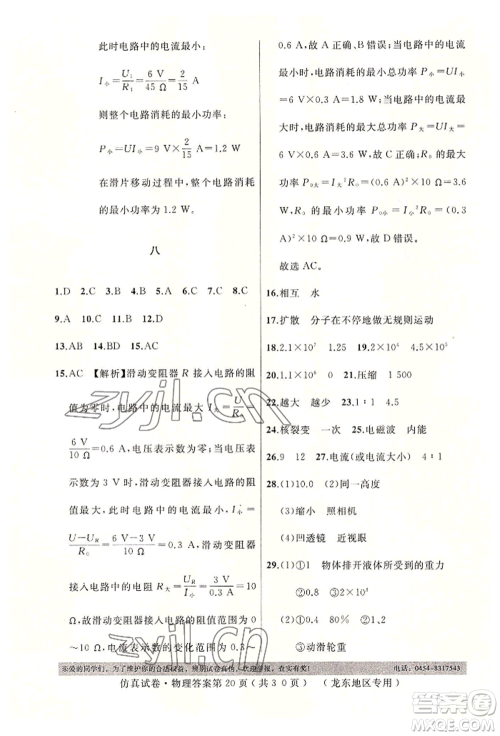 故当电路中的电流最小：
I小＝U/R1＝6 V/45 Ω＝2/15 A
则整个电路消耗的最小功率：
P小＝UI小＝9 V×2/15 A＝1.2 W
在滑片移动过程中，整个电路消耗
的最小功率为 1.2 W。
八
1.D 2.C 3.B 4.A 5.D 6.C 7.B 8.C
9.A 10.D 11.C 12.C
13.AB 14.BD 15.AC
15.AC 【解析】滑动变阻器 R 接入电路的阻
值为零时，电路中的电流最大 I大＝U/R0
＝6 V/10 Ω＝0.6 A，电压表示数为零；当电压
表的示数为 3 V 时，滑动变阻器接入电
路的阻值最大，电路中的电流最小 I小＝
U－UR/R0＝6 V－3 V/10 Ω＝0.3 A，滑动变阻器
接入电路中的电阻 R滑＝UR/I小＝3 V/0.3 A＝
10 Ω，变阻器接入电路的阻值范围为 0
～10 Ω，电路中的电流范围为 0.3 A～
0.6 A，故 A 正确、B 错误；当电路中的电
流最小时，电路的最小总功率 P小＝UI小＝
6 V×0.3 A＝1.8 W，故 C 正确；当电路中
的电流最大时，电路的最大总功率 P大＝
UI大＝6 V×0.6 A＝3.6 W，R0 消耗的最
大功率 P0大＝I大²R0＝(0.6 A)²×10 Ω＝
3.6 W，R0 的最小功率 P0小＝I小²R0＝(0.3
A)²×10 Ω＝0.9 W，故 D 错误。
故选 AC。
16.相互 水
17.扩散 分子在不停地做无规则运动
18.2.1×10⁷ 19.2.1×10⁵ 4.5×10³
20.1.1×10³ 0.06 21.压缩 1 500
22.越大 越少 23.2.5
24.核裂变 一次 25.电磁波 内能
26.9 12 27.电流(或电流大小) 4∶1
28.(1)10.0 (2)同一高度
(3)缩小 照相机
(4)凹透镜 近视眼
29.(1)①1 物体排开液体所受到的重力
②0.8 ③0.5
(2)③动滑轮重
亲爱的同学们，为了维护你的合法权益，
电话：0454-8317543
仿真试卷·物理答案第20页(共30页) (龙东地区专用)
zyjl.cn